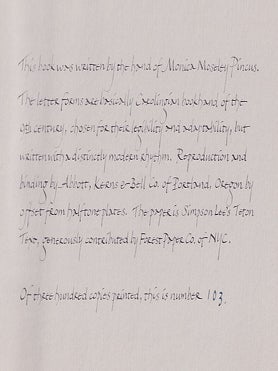 This book was written by the hand of Monica Moseley Pincus.
The letter forms are basically Carolingian bookhand of the
century, chosen for their legibility and adaptability, but
written with a distinctly modern rhythm. Reproduction and
binding by Abbott, Kerns & Bell Co. of Portland, Oregon by
offset from halftone plates. The paper is Simpson Lee's Teton
Text, generously contributed by Forest Paper Co. of NYC.
Of three hundred copies printed, this is number 103.